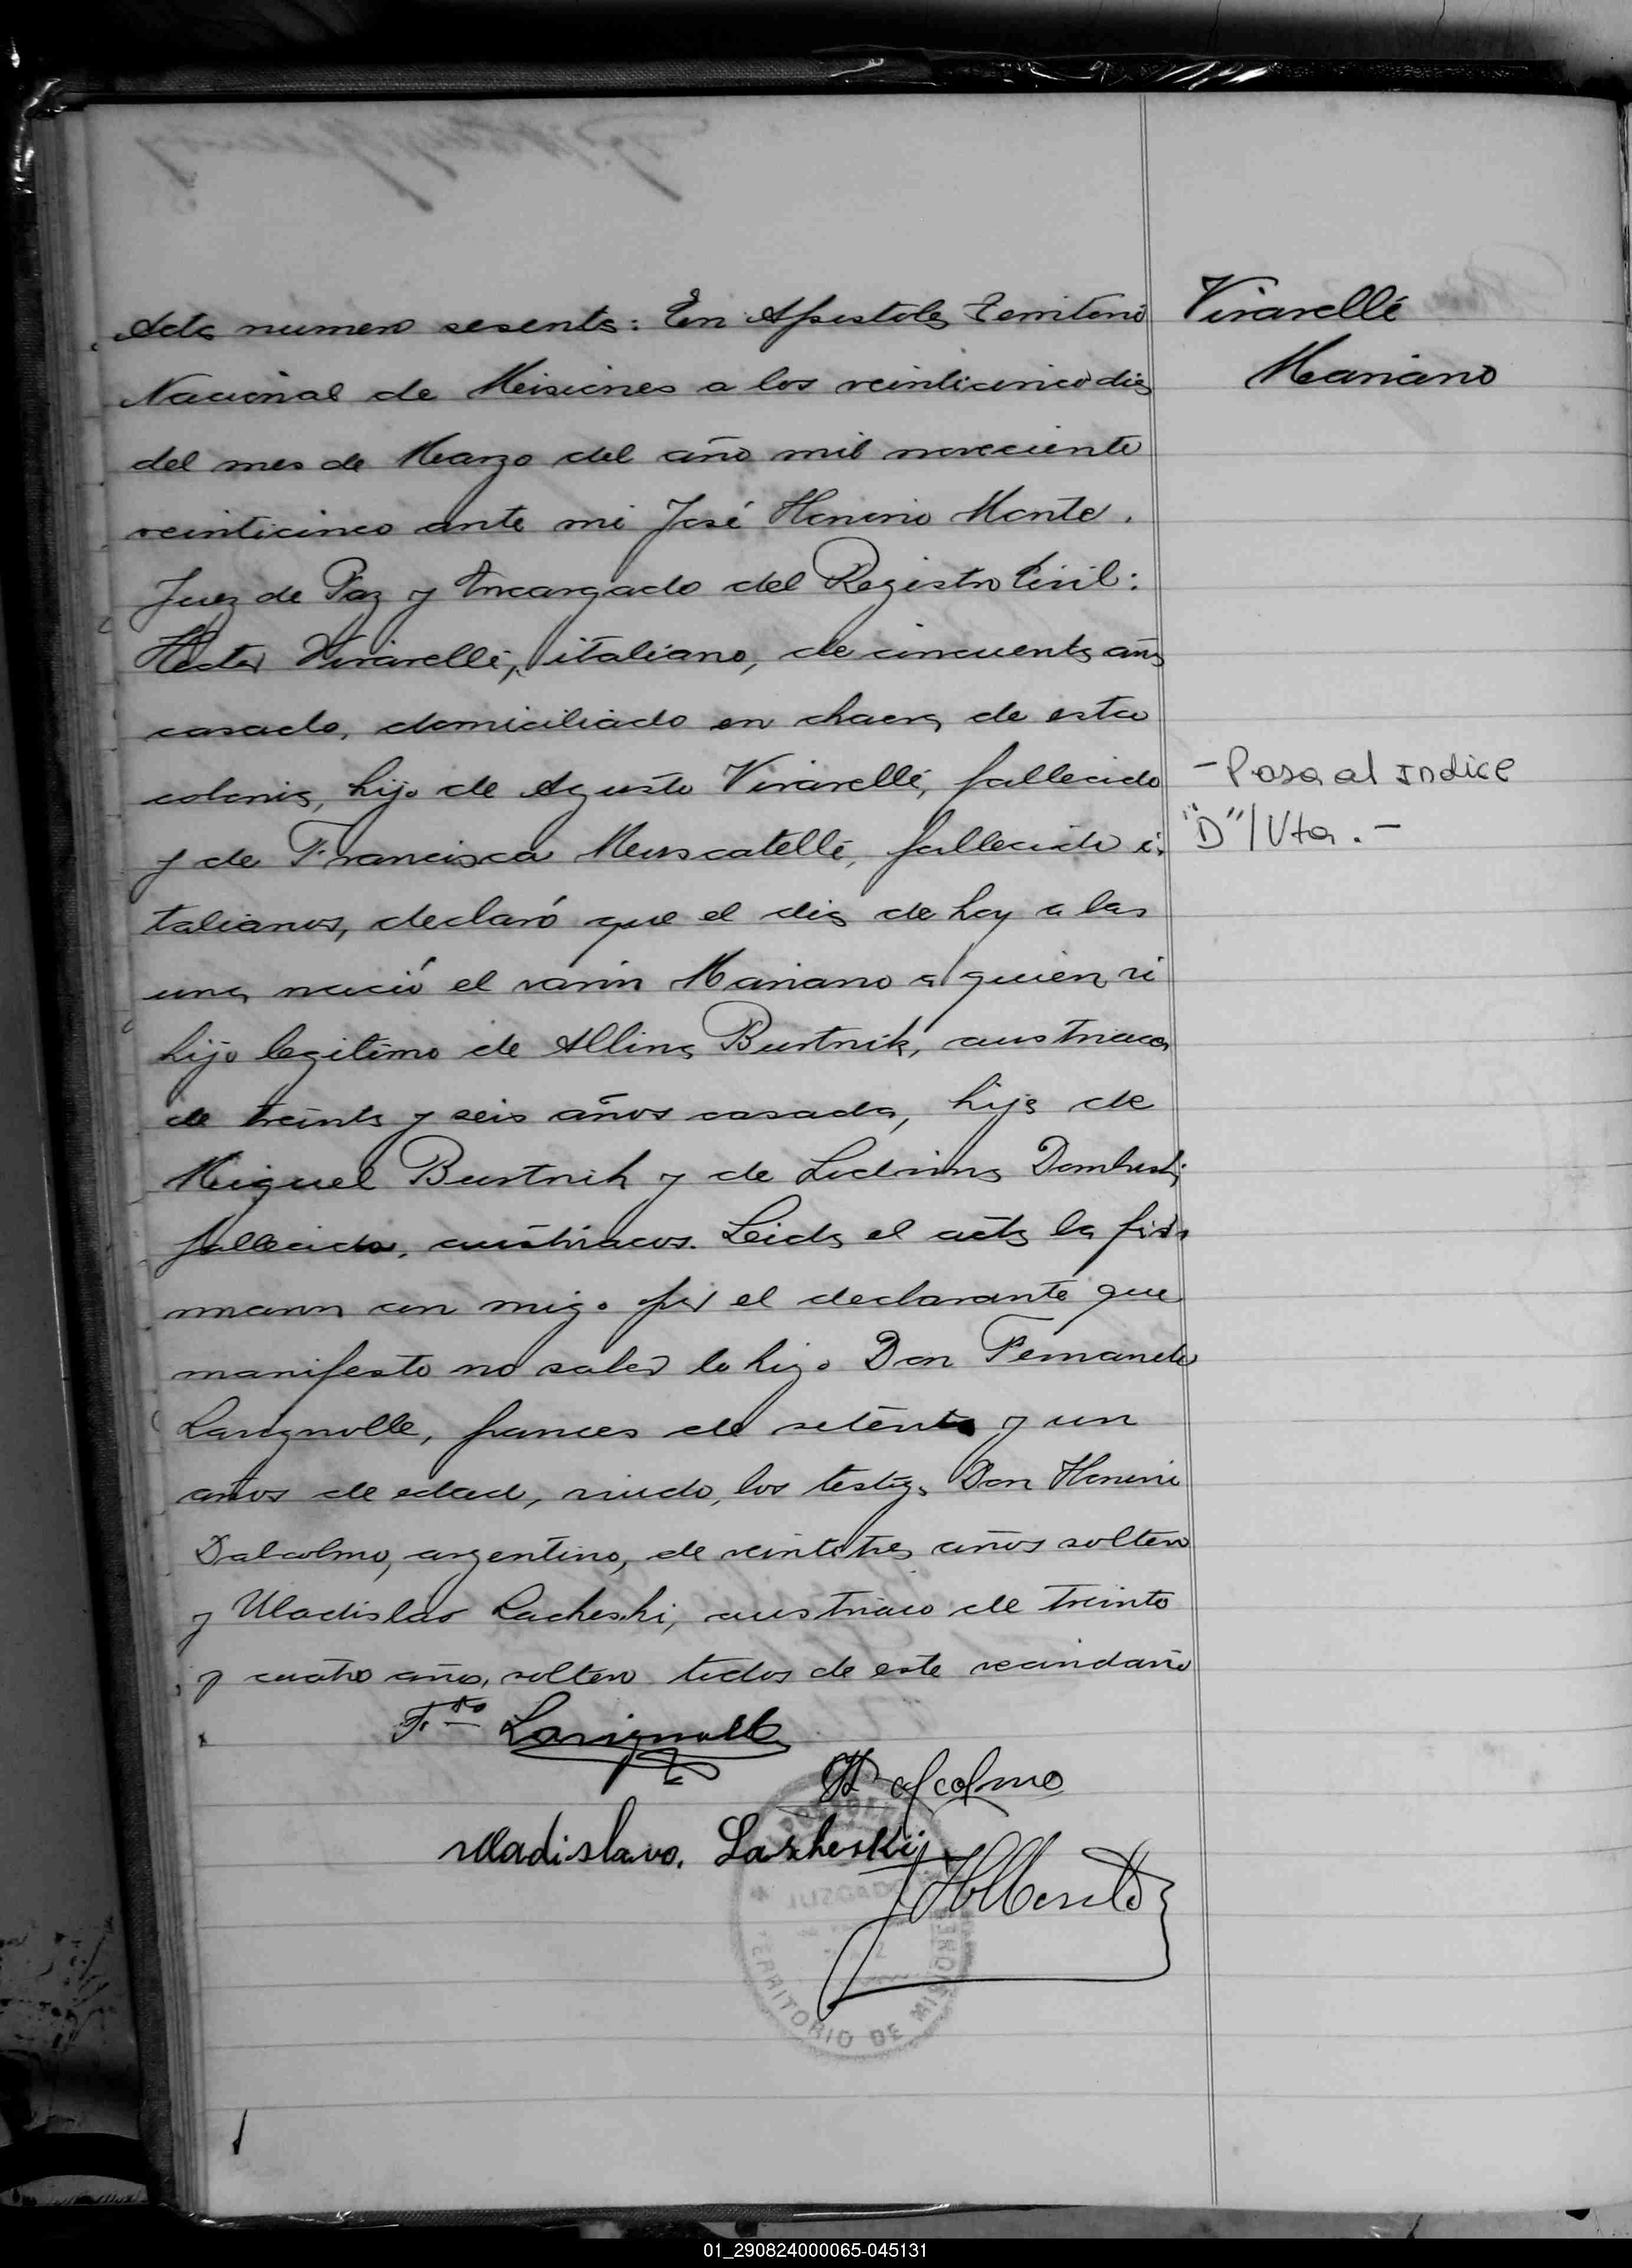 Acta numero sesenta: En Apostoles Territorio
Nacional de Misiones a los veinticinco dias
del mes de Marzo del año mil noveciento
veinticinco ante mi José Honorio Monte.
Juez de Paz y Encargado del Registro Civil:
Hector Virarelli, italiano, de cincuenta años
casado, domiciliado en chacra de esta
colonia, hijo de Agusto Virarelli, fallecido
y de Francisca Muscatelli, fallecida i
talianos, declaró que el dia de hoy a las
una nació el varón Mariano a quien vi
hijo legitimo de Albina Burtnik, austriaca
de treinta y seis años casada, hija de
Miguel Burtnik y de
fallecidos, austriacos. Leida el acta la fir
maron con migo por el declarante que
manifesto no saber lo hizo Don Fernando
Lavignolle, frances de setenta y un
años de edad, viudo, los testigs Don Honorio
Dalcolmo, argentino, de veintitres años soltero
y Uladislao Lacheski, austriaco de treinta
y cuatro años, soltero todos de este vecindario
Fdo Lavignolle
H Dalcolmo
Uladislavo. Lasheskij
JHMonte
JUZGADO
TERRITORIO DE MISIONES
Virarelli
Mariano
- Pasa al Indice
"D"/Vta. -
01_290824000065-045131